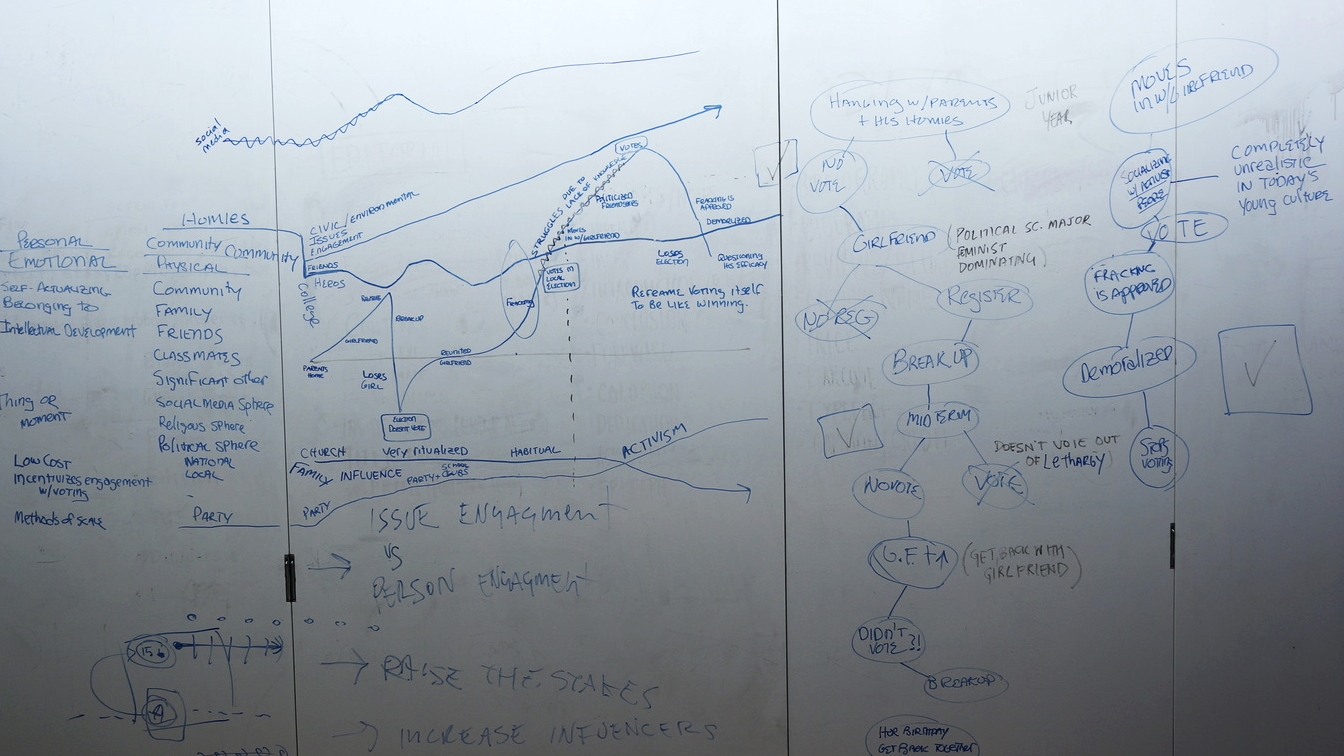 social
media
HOMIES
PERSONAL
EMOTIONAL
SELF-ACTUALIZING
Belonging to
Intellectual Development
Thing OR
MOMENT
LOW COST
Incentivizes engagement
w/voting
Methods of SCALE
Community Community
PHYSICAL
Community
FAMILY
FRIENDS
CLASSMATES
Significant other
SOCIAL MEDIA SPHERE
Religous SPHERE
Political SPHERE
NATIONAL
LOCAL
-
PARTY
CIVIC/ENVIRONMENTAL
ISSUES
ENGAGEMENT
FRIENDS
HEROS
College
PARENTS
HOME
GIRLFRIEND
BREAKUP
LOSES
GIRL
ELECTION
DOESN'T VOTE
REUNITED
GIRLFRIEND
FRACKING
STRUGGLES DUE TO
LACK OF KNOWLEDGE
VOTES
POLITICIZED
FRIENDSHIPS
MOVES
IN W/GIRLFRIEND
VOTES IN
LOCAL
ELECTION
FRACKING IS
APPROVED
DEMORALIZED
LOSES
ELECTION
QUESTIONING
HIS EFFICACY
REFRAME VOTING ITSELF
TO BE LIKE WINNING.
CHURCH
VERY RITUALIZED
HABITUAL
ACTIVISM
FAMILY INFLUENCE
PARTY +
SCHOOL
CLUBS
PARTY
ISSUE ENGAGMENT
VS
PERSON ENGAGMENT
RAISE THE STAKES
INCREASE INFLUENCERS
HANGING W/PARENTS
+ HIS HOMIES
JUNIOR
YEAR
NO
VOTE
VOTE
GIRLFRIEND
(POLITICAL SC. MAJOR
FEMINIST
DOMINATING)
NO REG
REGISTER
BREAK UP
MIDTERM
DOESN'T VOTE OUT
OF LETHARGY)
NO VOTE
VOTE
(GET BACK WITH
GIRLFRIEND)
DIDN'T
VOTE?!
BREAKUP
HER BIRTHDAY
GET BACK TOGETHER
MOVES
IN W/GIRLFRIEND
SOCIALIZING
W/
COMPLETELY
unrealistic
IN TODAY'S
young culture
VOTE
FRACKING
IS APPROVED
DEMORALIZED
STOPS
VOTING